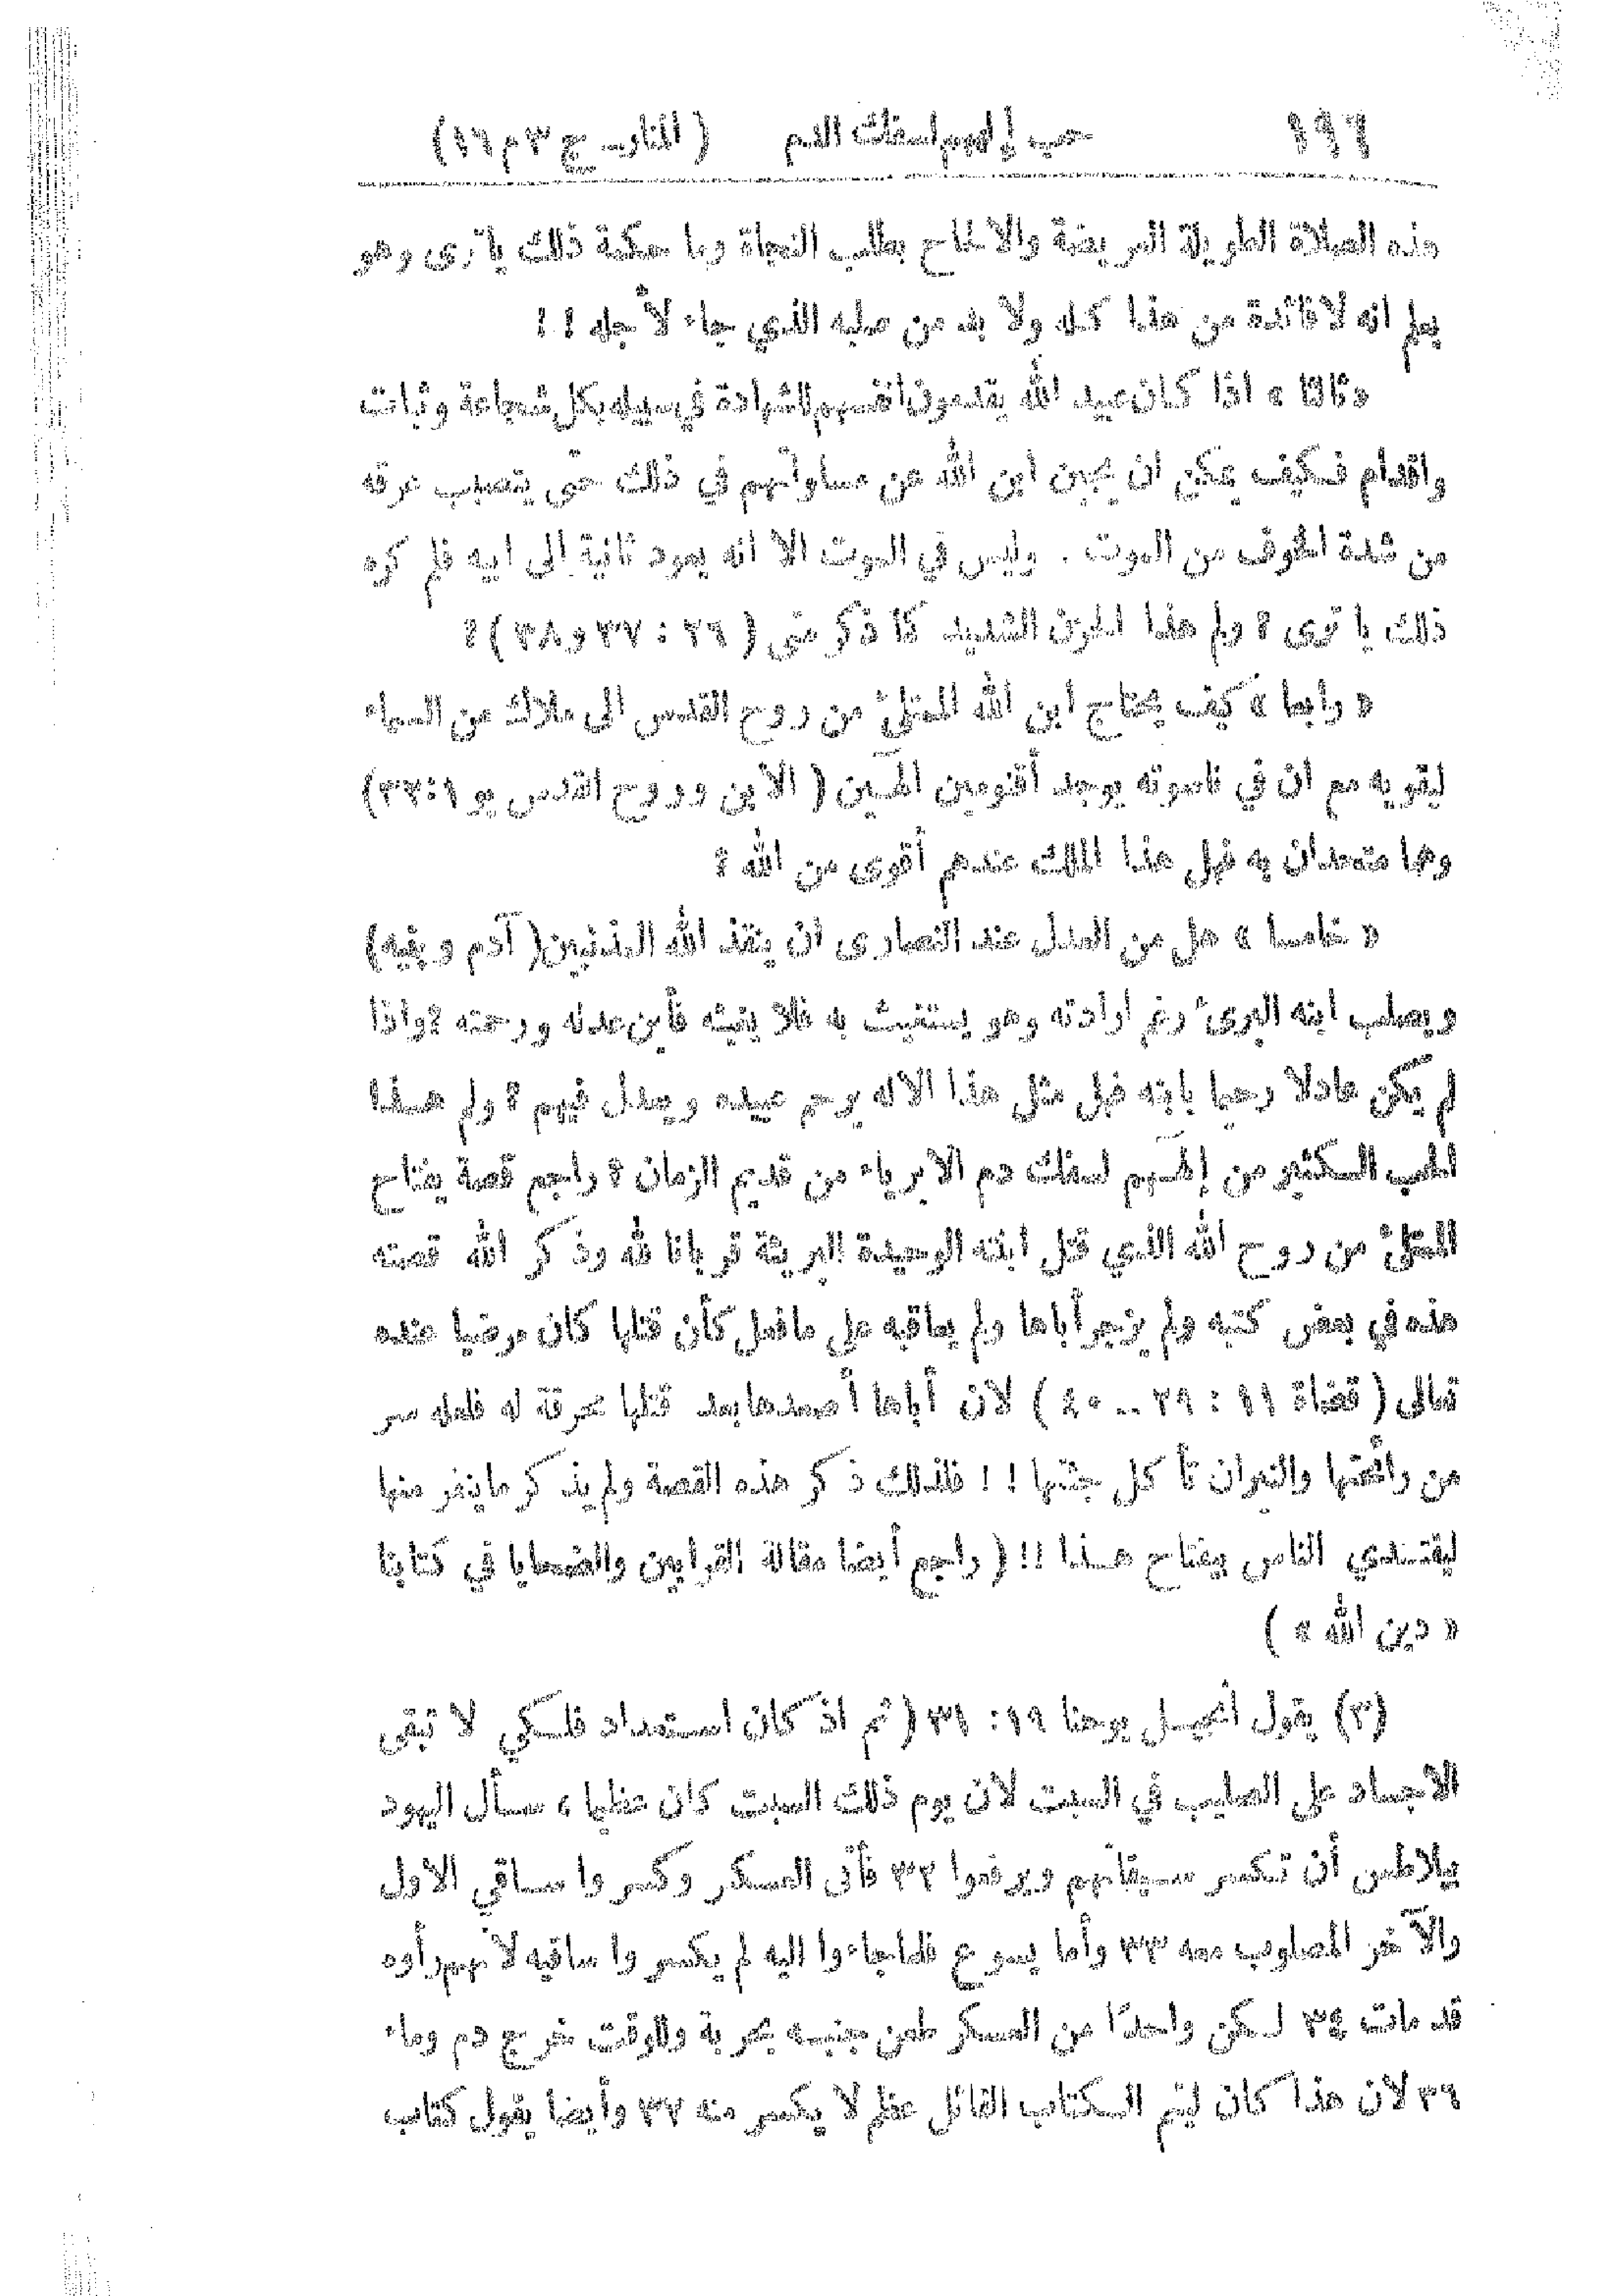 ١٩٦ حب إلههم لسفك الدم (المنار ج ٣ م ١٦)
هذه الصلاة الطويلة العريضة والالحاح بطلب النجاة وما حكمة ذلك يا ترى وهو
يعلم انه لا فائدة من هذا كله ولا بد من صلبه الذي جاء لأجله ! !
« ثالثا » اذا كان عبيد الله يقدمون انفسهم للشهادة في سبيله بكل شجاعة وثبات
واقدام فكيف يمكن ان يجبن ابن الله عن مساواتهم في ذلك حتى يتصبب عرقه
من شدة الخوف من الموت . وليس في الموت الا انه يعود ثانية إلى ابيه فلم كره
ذلك يا ترى ؟ ولم هذا الحزن الشديد كما ذكر متى ( ٢٦ : ٣٧ و ٣٨ ) ؟
« رابعا » كيف يحتاج ابن الله الممتلئ من روح القدس الى ملاك من السماء
ليقويه مع ان في ناسوته يوجد أقنومين الٰهين ( الابن وروح القدس يو ١ : ٣٢ )
وهما متحدان به فهل هذا الملاك عندهم أقوى من الله ؟
« خامسا » هل من العدل عند النصارى ان ينقذ الله المذنبين ( آدم وبنيه )
ويصلب ابنه البرئ رغم ارادته وهو يستغيث به فلا يغيثه فأين عدله ورحمته ؟ واذا
لم يكن عادلا رحيما بابنه فهل مثل هذا الاله يرحم عبيده ويعدل فيهم ؟ ولم هذا
الحب الكثير من إلٰههم لسفك دم الابرياء من قديم الزمان ؟ راجع قصة يفتاح
الممتلئ من روح الله الذي قتل ابنته الوحيدة البريئة قربانا لله وذكر الله قصته
هذه في بعض كتبه ولم يزجر أباها ولم يعاقبه على ما فعل كأن قتلها كان مرضيا عنده
تعالى ( قضاة ١١ : ٢٩ .. ٤٠ ) لان أباها أصعدها بعد قتلها محرقة له فلعله سر
من رائحتها والنيران تأكل جثتها ! ! فلذلك ذكر هذه القصة ولم يذكر ما ينفر منها
ليقتدي الناس بيفتاح هذا !! ( راجع أيضا مقالة القرابين والضحايا في كتابنا
« دين الله » )
(٣) يقول أنجيل يوحنا ١٩ : ٣١ ( ثم اذ كان استعداد فلكي لا تبقى
الاجساد على الصليب في السبت لان يوم ذلك السبت كان عظيما ، سأل اليهود
بيلاطس أن تكسر سيقانهم ويرفعوا ٣٢ فأتى العسكر وكسروا ساقي الاول
والآخر المصلوب معه ٣٣ وأما يسوع فلما جاءوا اليه لم يكسروا ساقيه لأنهم رأوه
قد مات ٣٤ لكن واحدًا من العسكر طعن جنبه بحربة وللوقت خرج دم وماء
٣٦ لان هذا كان ليتم الكتاب القائل عظم لا يكسر منه ٣٧ وأيضا يقول كتاب